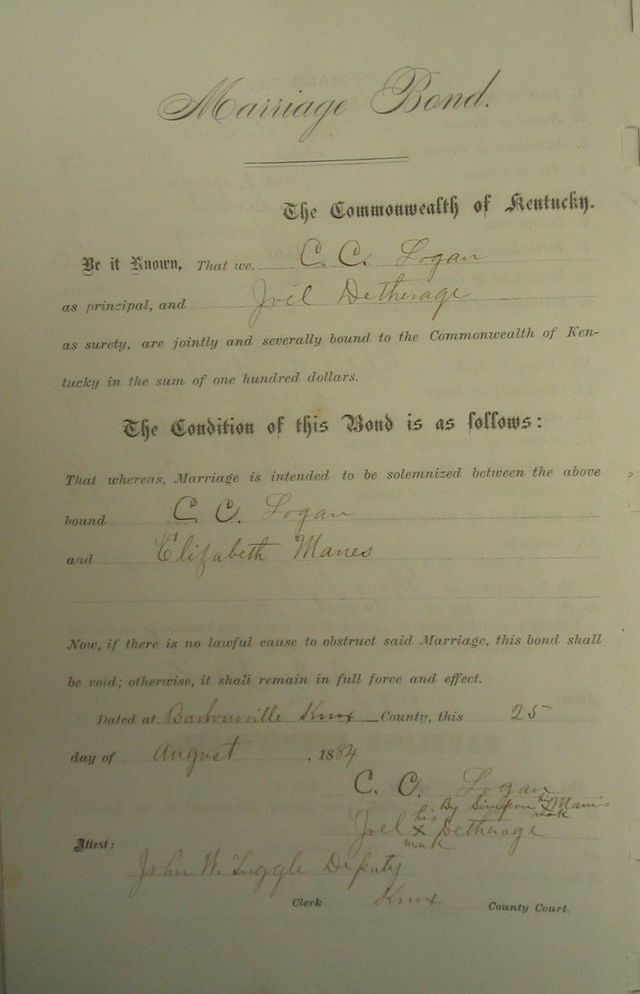 Marriage Bond.
The Commonwealth of Kentucky.
Be it Known, That we. C. C. Logan
as principal, and Joel Detherage
as surety, are jointly and severally bound to the Commonwealth of Ken-
tucky in the sum of one hundred dollars.
The Condition of this Bond is as follows:
That whereas, Marriage is intended to be solemnized between the above
bound C C. Logan
and Elizabeth Manes
Now, if there is no lawful cause to obstruct said Marriage, this bond shall
be void; otherwise, it shall remain in full force and effect.
Dated at Barbourville Knox County, this 25
day of August , 1884
C. C. Logan
By Simpson his x Manis
mark
his
Joel x Detherage
mark
Attest:
John W. Tuggle Deputy
Clerk Knox County Court.